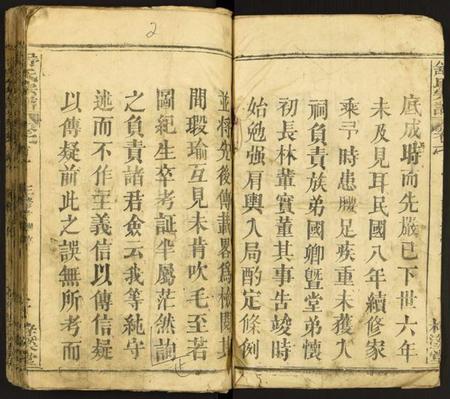 底成時而先嚴已下世六年
未及見耳民國八年續修家
乘寻時患腿足疾重未獲入
祠負責族弟國卿暨堂弟懷
初長林董實董其事告竣時
始勉强肩輿入局酌定條例
並将先後傳誌畧爲檢閱其
間瑕瑜互見未肯吹毛至若
圖紀生卒考証半屬茫然詢
之負責諸君僉云我等純守
述而不作主義信以傳信疑
以傳疑前此之誤無所考而
2